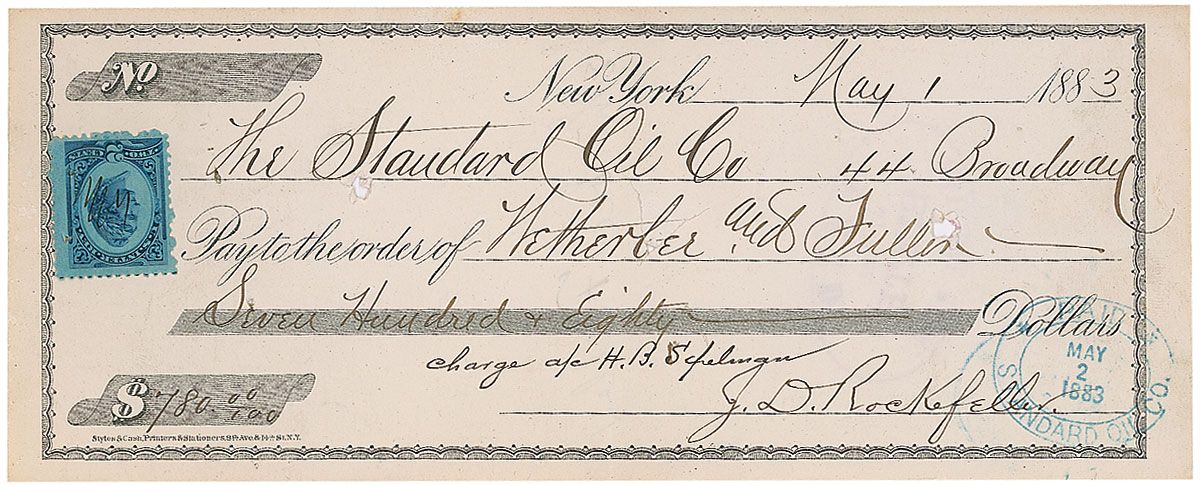 No.
New York May 1 1883
The Standard Oil Co 44 Broadway
Pay to the order of Wetherbee and Fuller
Seven Hundred & Eighty Dollars
charge a/c H. B. Spelman
$ 780.00/100
J. D. Rockefeller.
Styles & Cash, Printers & Stationers, 8th Ave & 14th St. N.Y.
PAID BY
MAY
2
1883
STANDARD OIL CO.